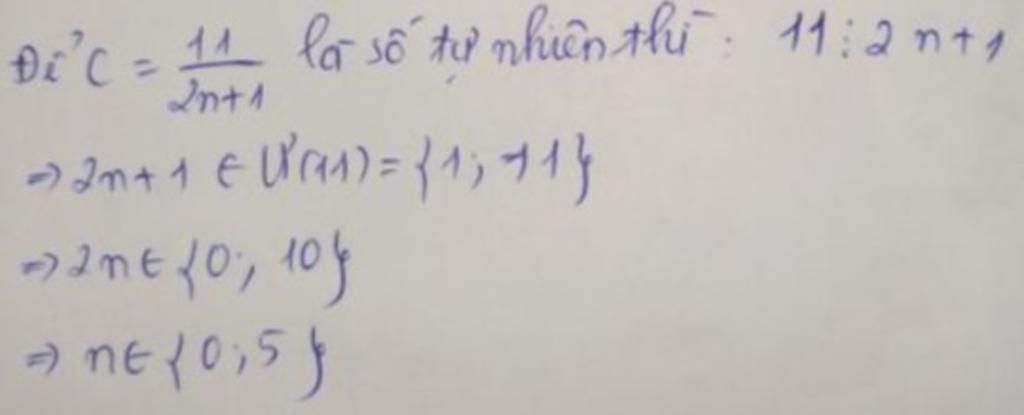 Để C = 11/2n+1 là số tự nhiên thì: 11 ⋮ 2n+1
⇒ 2n+1 ∈ Ư(11) = {1; 11}
⇒ 2n ∈ {0; 10}
⇒ n ∈ {0; 5}